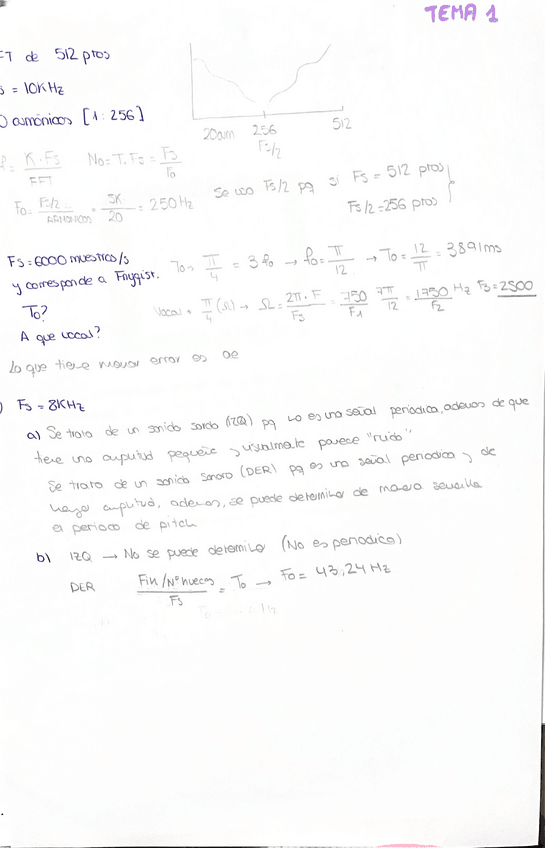 TEMA 1
FT de 512 ptos
s = 10KHz
0 armónicos [1:256]
20arm 256 512
Fs/2
K·Fs / FFT No = T·Fs = Fs/To
Fo = Fs/2 / ARMÓNICOS = 5K/20 = 250 Hz
Se usa Fs/2 pq si Fs = 512 ptos
Fs/2 = 256 ptos
Fs = 6000 muestras/s
y corresponde a Fnyqist.
To = π/4 = 3fo → fo = π/12 → To = 12/π = 3'891ms
To?
Vocal = π/4 (Ω) → Ω = 2π·F/Fs = 750 F1 7π/12 = 1750 Hz F2 Fs = 2500
A que vocal?
Lo que tiene menor error es ae
) Fs = 8KHz
a) Se trata de un sonido sordo (IZQ) pq no es una señal periodica, ademas de que
tiene una amplitud pequeña y usualmente parece "ruido"
Se trata de un sonido sonoro (DER) pq es una señal periodica y de
mayor amplitud, ademas, se puede determinar de manera sencilla
el periodo de pitch
b) IZQ → No se puede determinar (No es periodica)
DER Fin/Nº huecos / Fs = To → Fo = 43,24 Hz